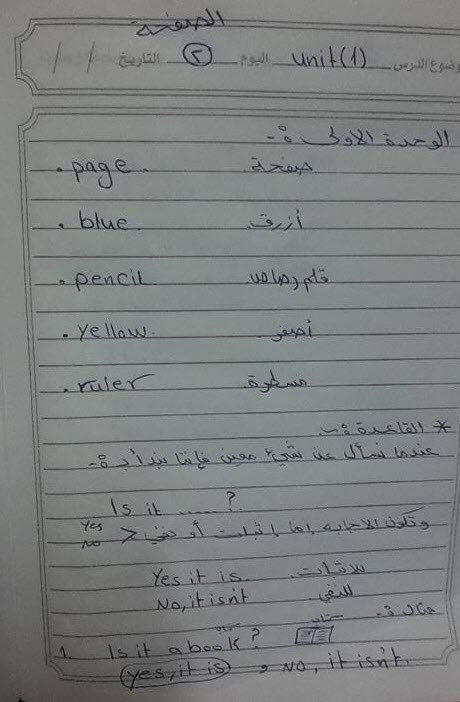 الصفحة
وضوع الدرس unit(1) اليوم ٢ التاريخ / /
الوحدة الاولى :-
. page. صفحة
. blue أزرق
. pencil قلم رصاص
. yellow أصفر
. ruler مسطرة
* القاعدة :-
عندما نسأل عن شيء معين فإننا نبدأ بـ :-
Is it ......?
وتكون الاجابه إما إثبات أو نفي < yes no
Yes it is. للاثبات
No, it isn't للنفي
مثال :-
1. Is it a book? كتاب كتاب
yes, it is , NO, it isn't.